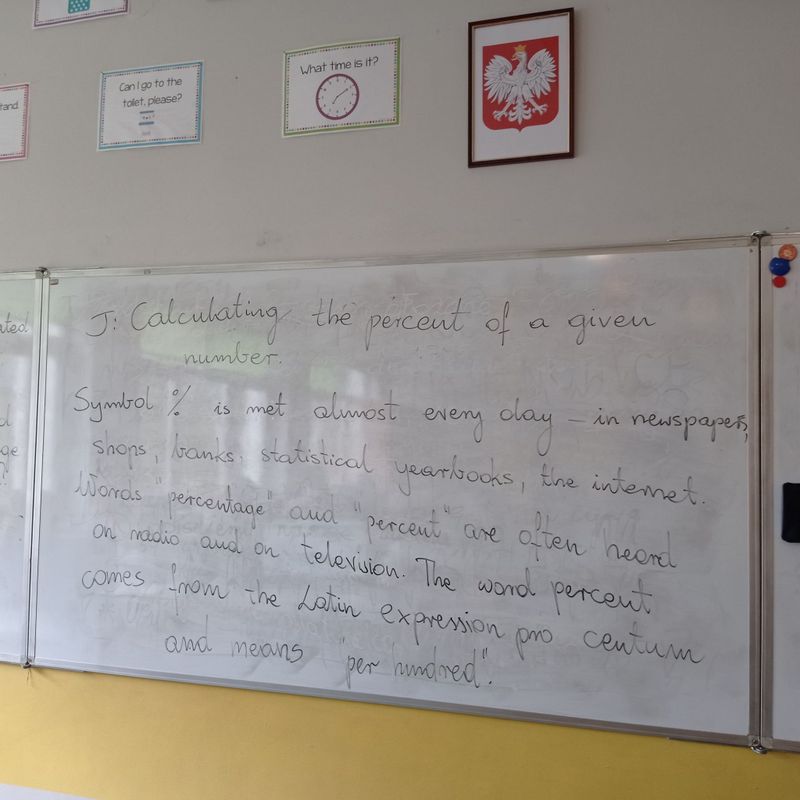 tand.
Can I go to the
toilet, please?
What time is it?
ated
ge
J: Calculating the percent of a given
number.
Symbol % is met almost every day – in newspapers,
shops, banks, statistical yearbooks, the internet.
Words "percentage" and "percent" are often heard
on radio and on television. The word percent
comes from the Latin expression pro centum
and means "per hundred".